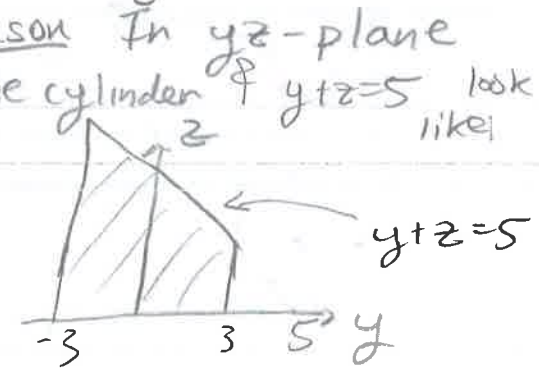 son In yz-plane
e cylinder & y+z=5 look
like
z
y+z=5
-3 3 5 y